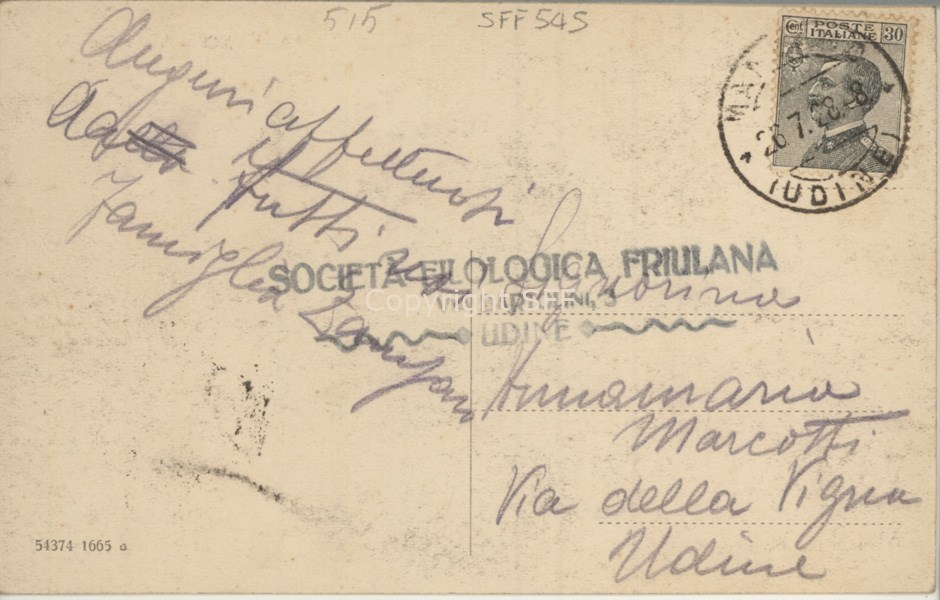 515 SFF 545
Cent POSTE ITALIANE 30
26.7.28.-8
(UDINE)
Auguri affettuosi
da tutti
Famiglia
SOCIETÀ FILOLOGICA FRIULANA
Copyright SFF
UDINE
Signorina
Annamaria
Marcotti
Via della Vigna
Udine
54374 1665 a